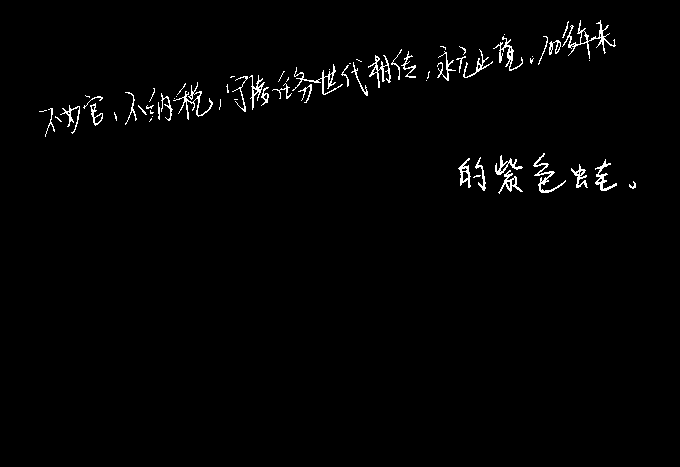 不为官、不纳税,守陵任务世代相传,永无止境。700多年来
的紫色蛙。